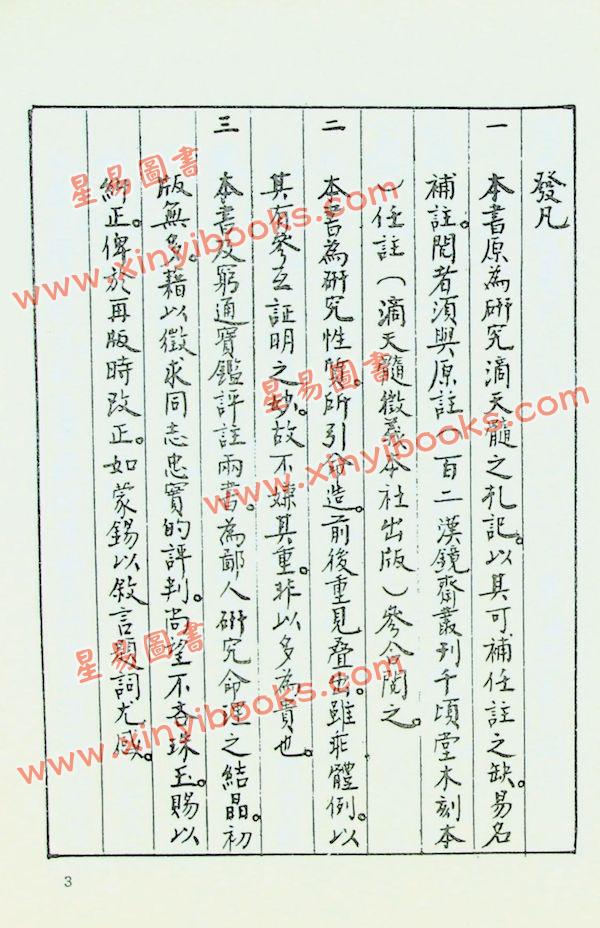 發凡
一 本書原為研究滴天髓之札記。以其可補任註之缺。易名
補註。閱者須與原註(百二漢鏡齋叢刊千頃堂木刻本
)任註(滴天髓徵義本社出版)參合閱之。
二 本書為研究性質。所引命造。前後重見叠出。雖乖體例。以
其有參互証明之妙。故不嫌其重。非以多為貴也。
三 本書及窮通寶鑑評註兩書。為鄙人研究命理之結晶。初
版無多。藉以徵求同志忠實的評判。尚望不吝珠玉。賜以
糾正。俾於再版時改正。如蒙錫以敘言題詞尤感。
星易圖書
www.xinyibooks.com
星易圖書
www.xinyibooks.com
星易圖書
www.xinyibooks.com
3